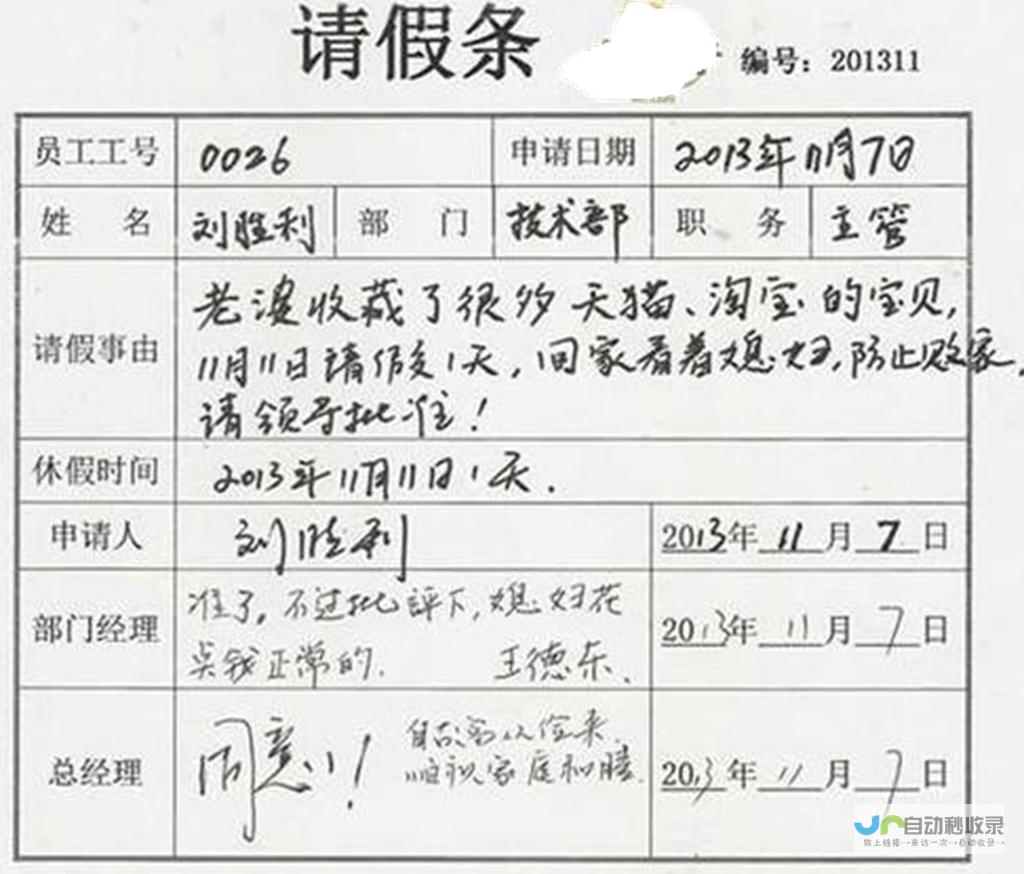 请假条
编号：201311
员工工号 0026 申请日期 2013年11月7日
姓 名 刘胜利 部 门 技术部 职 务 主管
老婆收藏了很多天猫、淘宝的宝贝，
请假事由 11月11日请假1天，回家看着媳妇，防止败家，
请领导批准！
休假时间 2013年11月11日1天．
申请人 刘胜利 2013年11月7日
准了，不过批评下，媳妇花
部门经理 2013年11月7日
点钱正常的． 王德东．
自古穷从俭来，
同意！ 顺祝家庭和睦．
总经理 2013年11月7日
自动秒收录
做上链接→来访一次→自动收录→